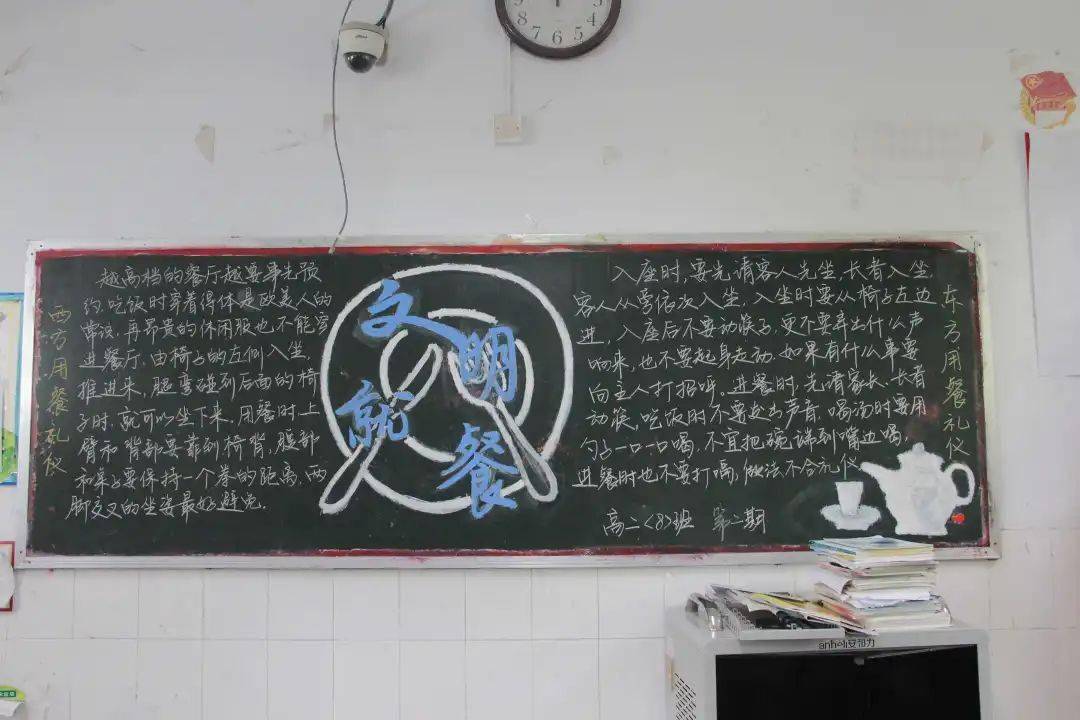 西方用餐礼仪
越高档的餐厅越要事先预
约，吃饭时穿着得体是欧美人的
常识，再昂贵的休闲服也不能穿
进餐厅，由椅子的左侧入坐，
推进来，腿弯碰到后面的椅
子时，就可以坐下来，用餐时上
臂和背部要靠到椅背，腹部
和桌子要保持一个拳的距离，两
脚交叉的坐姿最好避免。
文明
就餐
入座时，要先请客人先坐，长者入坐，
客人从旁依次入坐，入坐时要从椅子左边
进，入座后不要动筷子，更不要弄出什么声
响来，也不要起身走动，如果有什么事要
向主人打招呼。进餐时，先请客长、长者
动筷，吃饭时不要出声音，喝汤时要用
勺子一口一口喝，不宜把碗端到嘴边喝，
进餐时也不要打嗝，做法不合礼仪
高二〈8〉班 第二期
东方用餐礼仪
anheli安和力
8 7 6 5 4